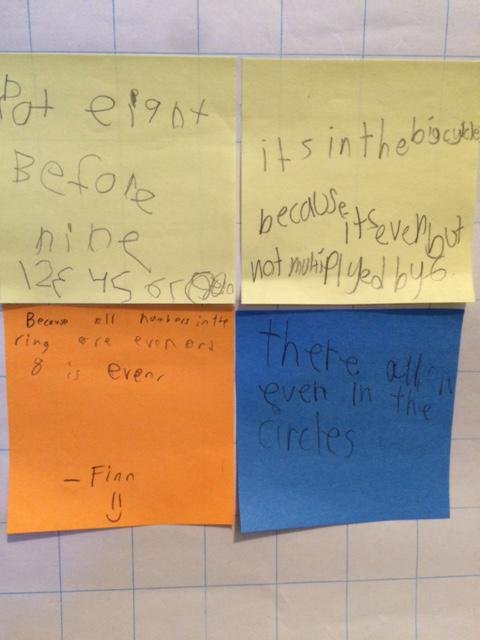 Pot eight
Before
nine
its in the big cycle
because its even but
not multiplyed by 6
Because all numbers in the
ring are even and
8 is even,
- Finn
there all in
even in the
circles